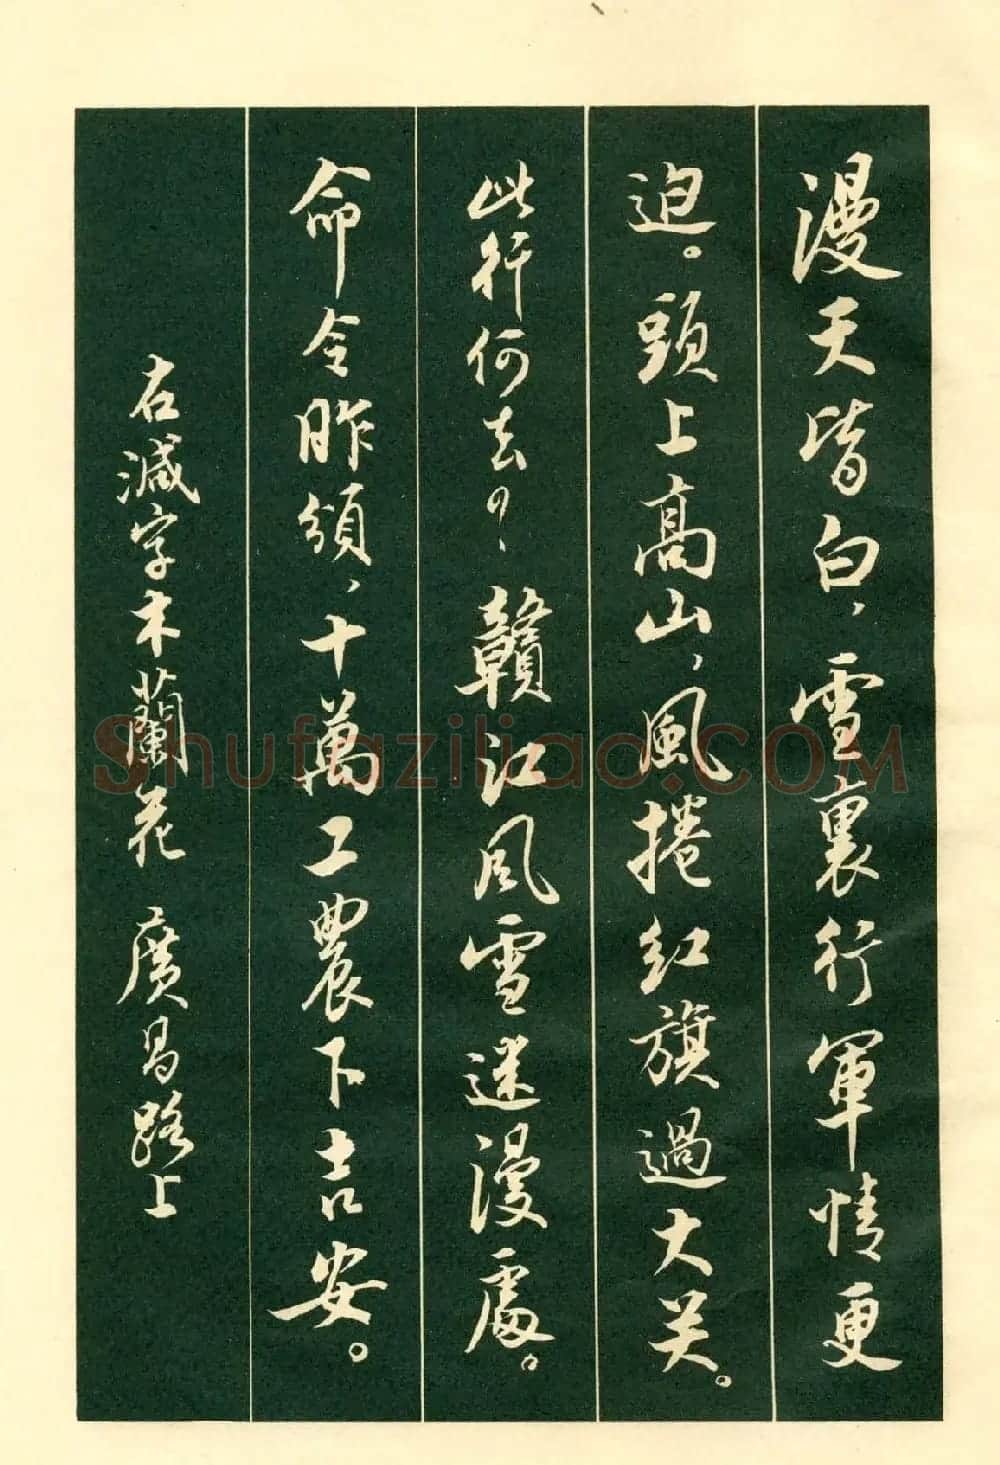 漫天皆白，雪裏行軍情更
迫。頭上高山，風捲红旗過大关。
此行何去？贛江风雪迷漫處。
命令昨頒，十萬工農下吉安。
右減字木蘭花 廣昌路上
Shufaziliao.COM